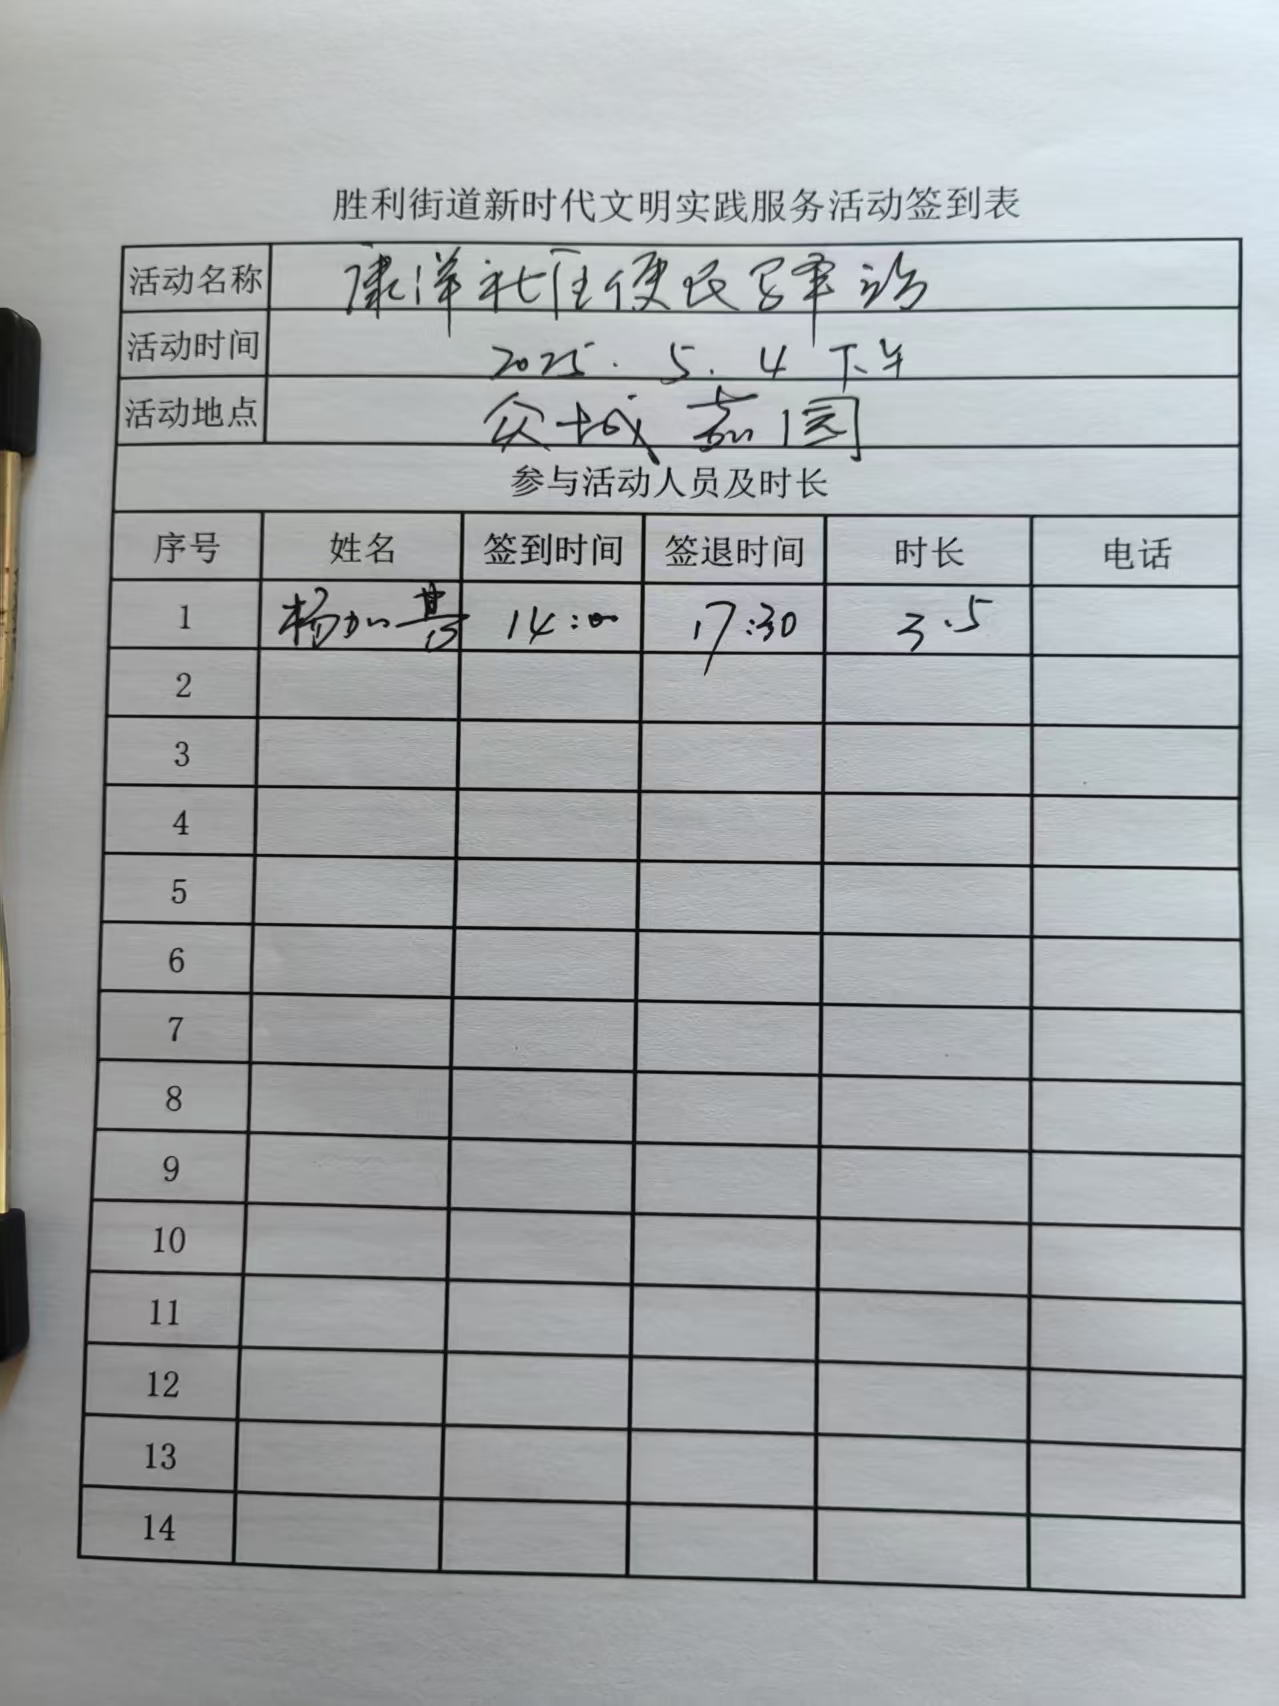 胜利街道新时代文明实践服务活动签到表
活动名称 康洋社区便民驿站
活动时间 2025.5.4 下午
活动地点 众城嘉园
参与活动人员及时长
序号 姓名 签到时间 签退时间 时长 电话
1 杨加 14:00 17:30 3.5
2
3
4
5
6
7
8
9
10
11
12
13
14